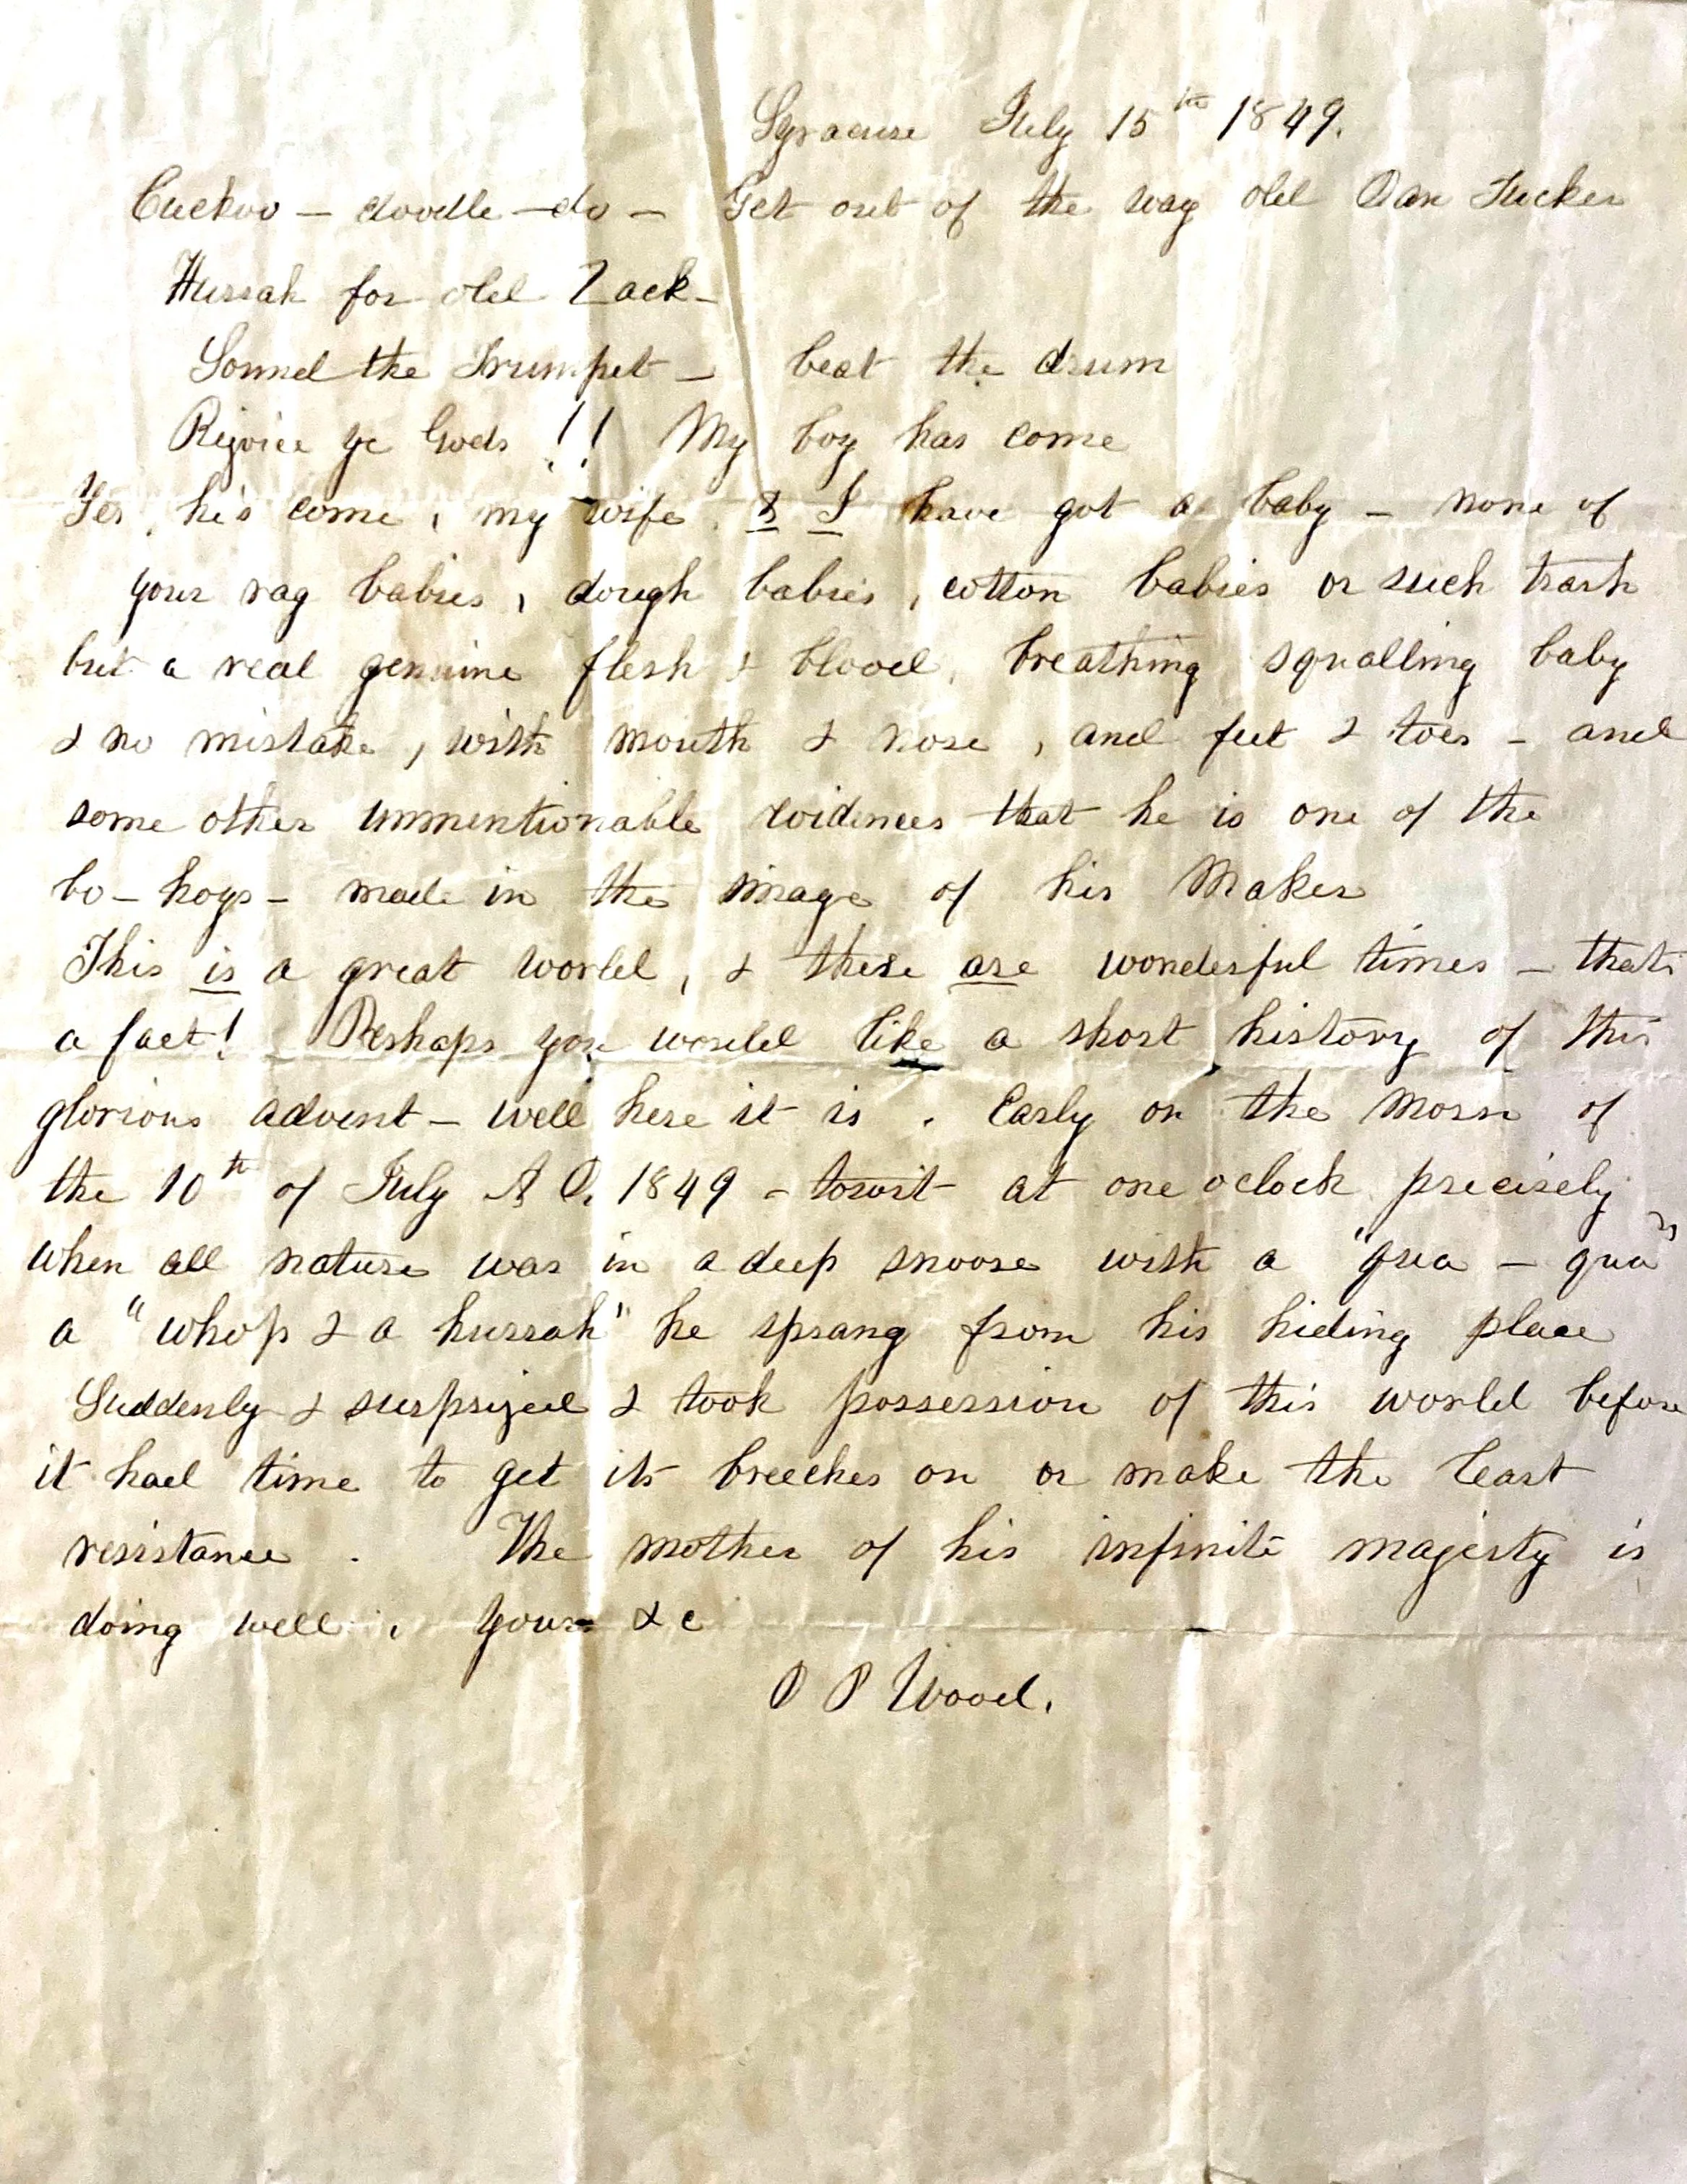 Syracuse July 15th 1849.
Cuckoo - doodle - do - Get out of the way old Dan Tucker
Hurrah for old Zack -
Sound the Trumpet - beat the drum
Rejoice ye Gods !! My boy has come
Yes, he's come, my wife & I have got a baby - none of
your rag babies, dough babies, cotton babies or such trash
but a real genuine flesh & blood, breathing squalling baby
& no mistake, with mouth & nose, and feet & toes - and
some other unmentionable evidences that he is one of the
bo-hoys - made in the image of his Maker
This is a great world, & these are wonderful times - thats
a fact! Perhaps you would like a short history of this
glorious advent - well here it is. Early on the morn of
the 10th of July A D. 1849 - towit at one oclock precisely
when all nature was in a deep snoose with a "qua - qua"
a "whop & a hurrah" he sprang from his hiding place
Suddenly & surprized & took possession of this world before
it had time to get its breeches on or make the least
resistance. The mother of his infinite majesty is
doing well. Yours &c
O P Wood.